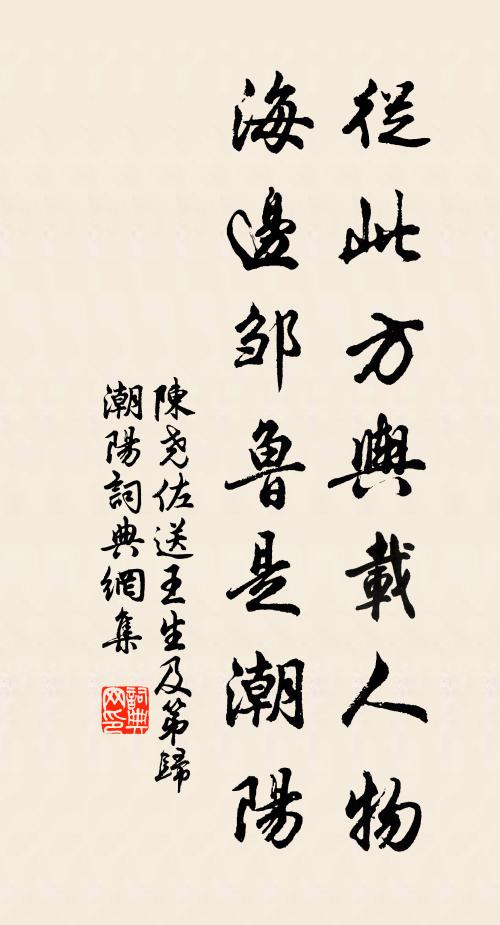 從此方輿載人物
海邊邹魯是潮陽
陳尧佐送王生及第歸
潮陽詞典網集
詞典
网印